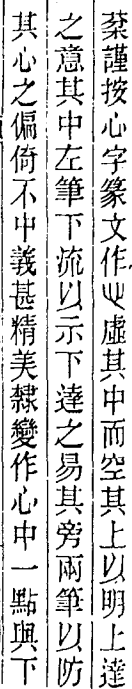 棻謹按心字篆文作㣺虛其中而空其上以明上達
之意其中左筆下流以示下達之易其旁兩筆以防
其心之偏倚不中義甚精美隸變作心中一點與下